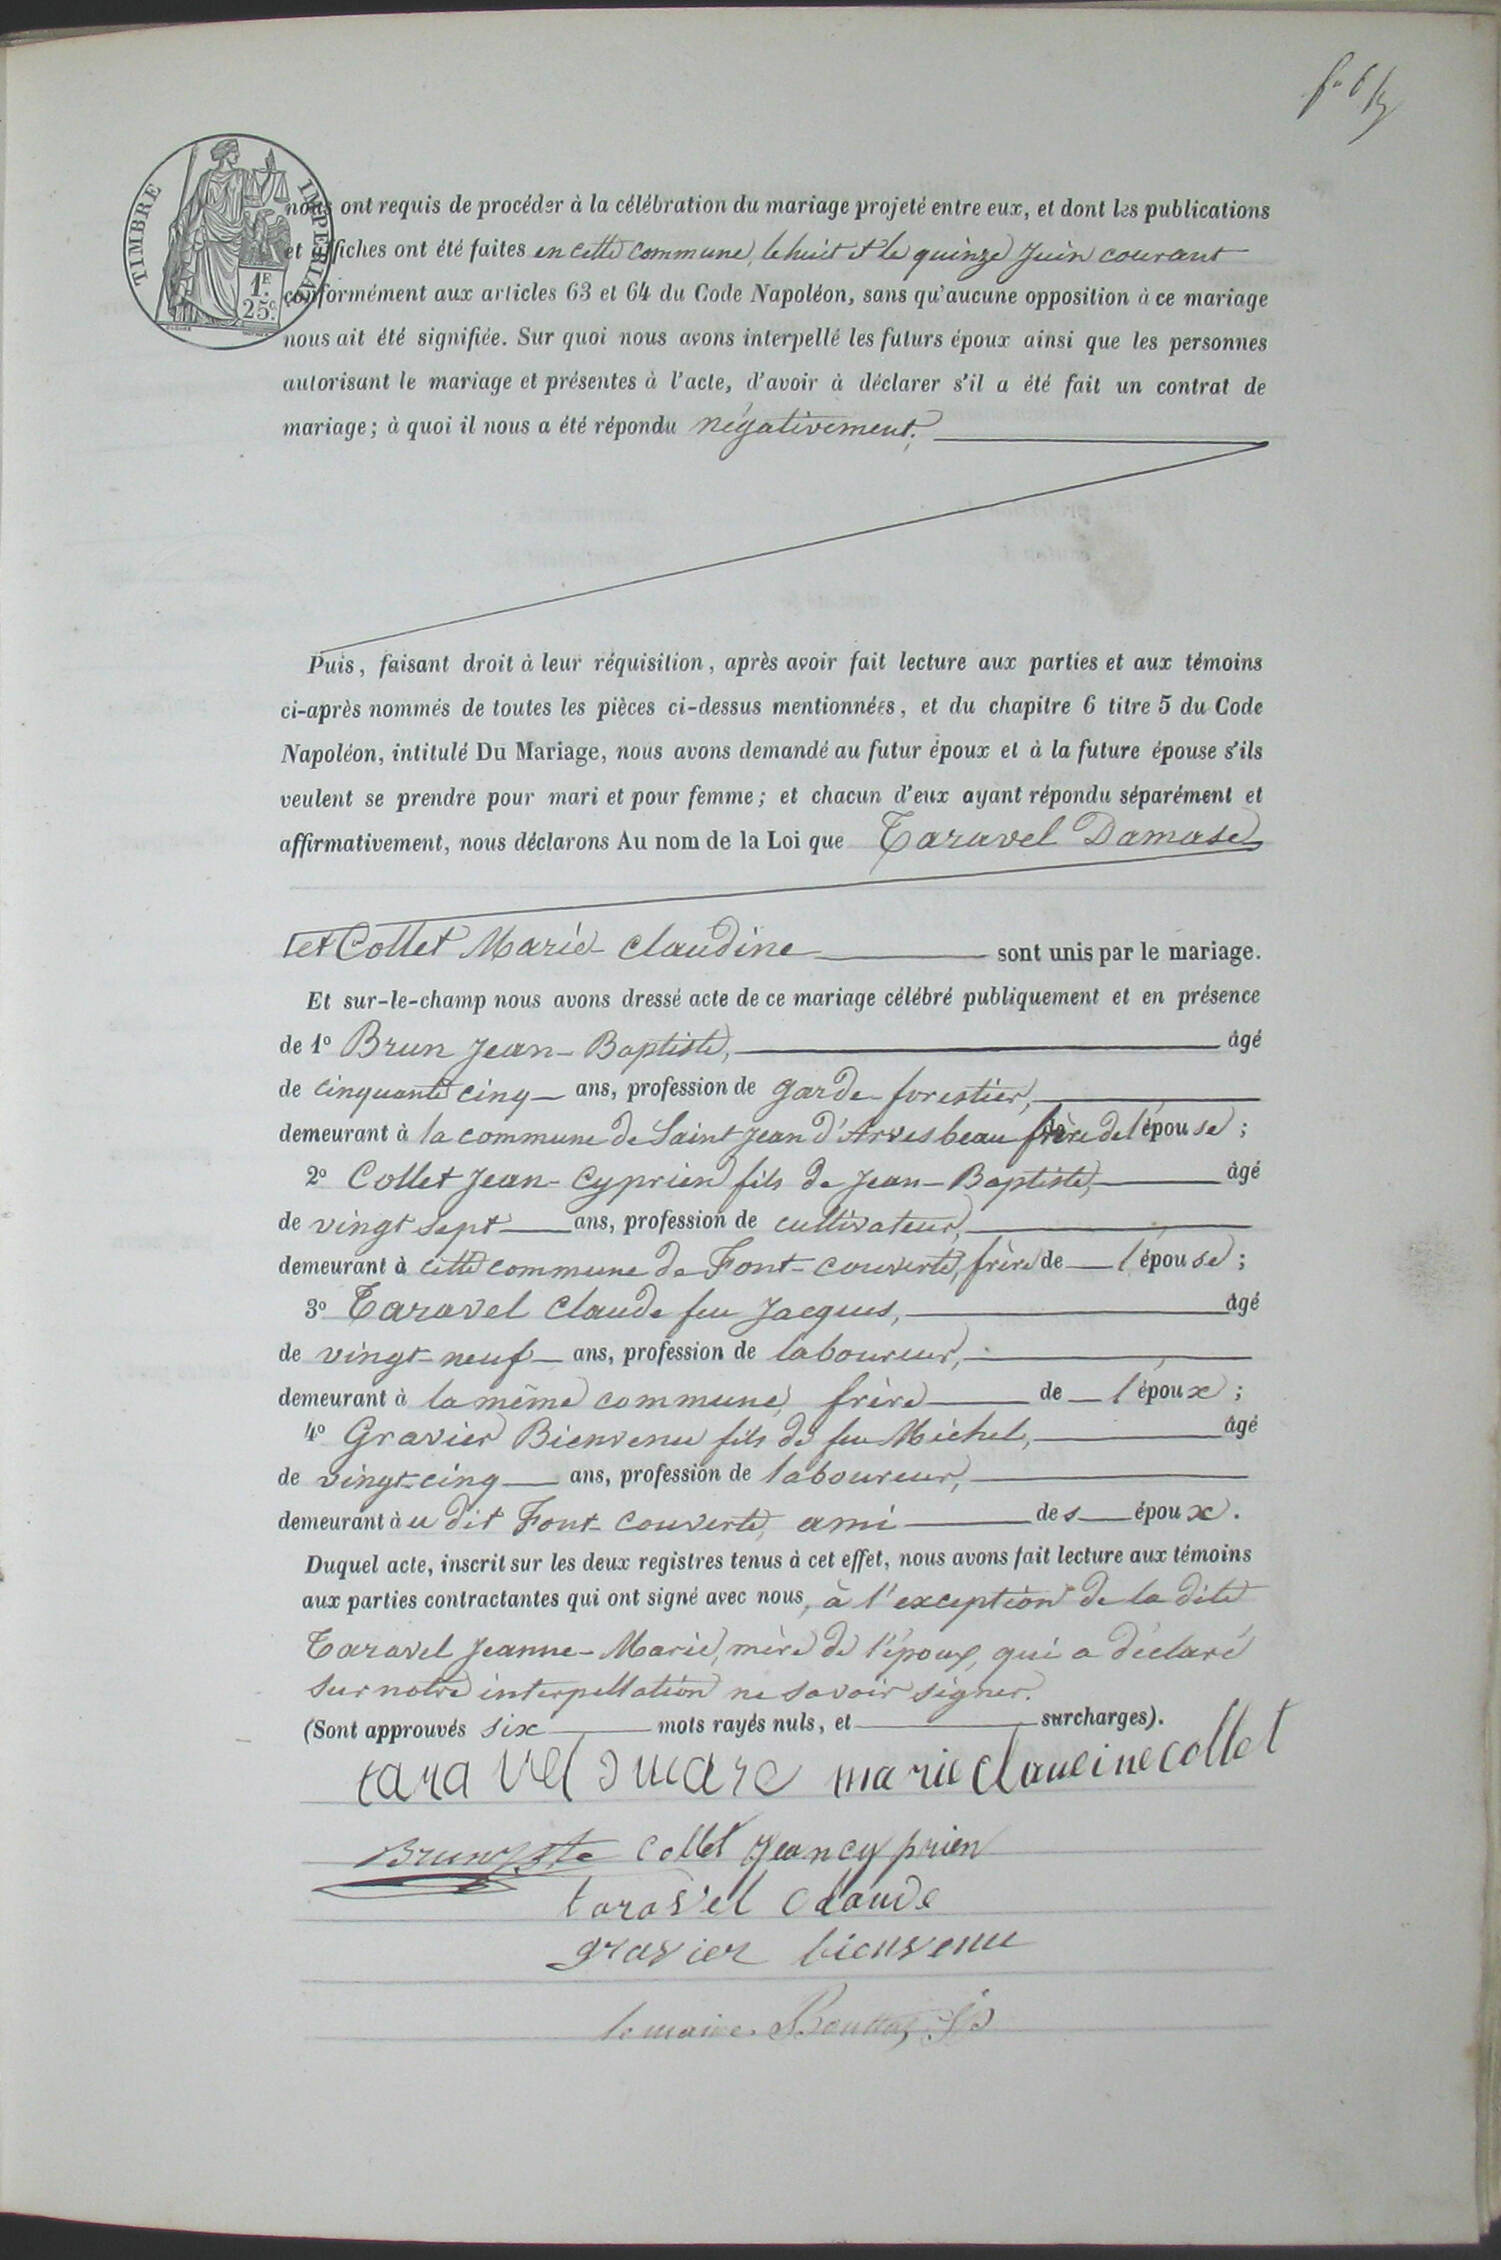 TIMBRE IMPERIAL
1F. 25c.
nous ont requis de procéder à la célébration du mariage projeté entre eux, et dont les publications
et affiches ont été faites en cette commune, le huit & le quinze Juin courant
conformément aux articles 63 et 64 du Code Napoléon, sans qu'aucune opposition à ce mariage
nous ait été signifiée. Sur quoi nous avons interpellé les futurs époux ainsi que les personnes
autorisant le mariage et présentes à l'acte, d'avoir à déclarer s'il a été fait un contrat de
mariage; à quoi il nous a été répondu négativement.
Puis, faisant droit à leur réquisition, après avoir fait lecture aux parties et aux témoins
ci-après nommés de toutes les pièces ci-dessus mentionnées, et du chapitre 6 titre 5 du Code
Napoléon, intitulé Du Mariage, nous avons demandé au futur époux et à la future épouse s'ils
veulent se prendre pour mari et pour femme; et chacun d'eux ayant répondu séparément et
affirmativement, nous déclarons Au nom de la Loi que Taravel Damase
et Collet Marie-Claudine sont unis par le mariage.
Et sur-le-champ nous avons dressé acte de ce mariage célébré publiquement et en présence
de 1° Brun Jean-Baptiste, âgé
de cinquante cinq ans, profession de garde-forestier,
demeurant à la commune de Saint Jean d'Arves beau frère de l'épouse;
2° Collet Jean-Cyprien fils de Jean-Baptiste, âgé
de vingt sept ans, profession de cultivateur,
demeurant à cette commune de Font-couverte, frère de l'épouse;
3° Taravel Claude feu Jacques, âgé
de vingt-neuf ans, profession de laboureur,
demeurant à la même commune, frère de l'époux;
4° Gravier Bienvenu fils de feu Michel, âgé
de vingt-cinq ans, profession de laboureur,
demeurant à u dit Font-couverte, ami des époux.
Duquel acte, inscrit sur les deux registres tenus à cet effet, nous avons fait lecture aux témoins
aux parties contractantes qui ont signé avec nous, à l'exception de la dite
Taravel Jeanne-Marie, mère de l'époux, qui a déclaré
sur notre interpellation ne savoir signer.
(Sont approuvés six mots rayés nuls, et surcharges).
taravel marie claudine collet
Brun Collet Jean cyprien
taravel Claude
gravier bienvenu
le maire